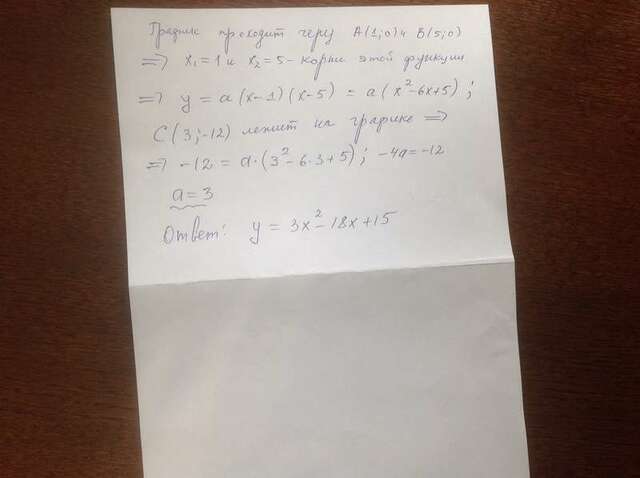 График проходит через A(1;0) и B(5;0)
=> x₁=1 и x₂=5 - корни этой функции
=> y = a(x-1)(x-5) = a(x²-6x+5);
C(3;-12) лежит на графике =>
=> -12 = a·(3²-6·3+5); -4a=-12
a=3
Ответ: y = 3x²-18x+15